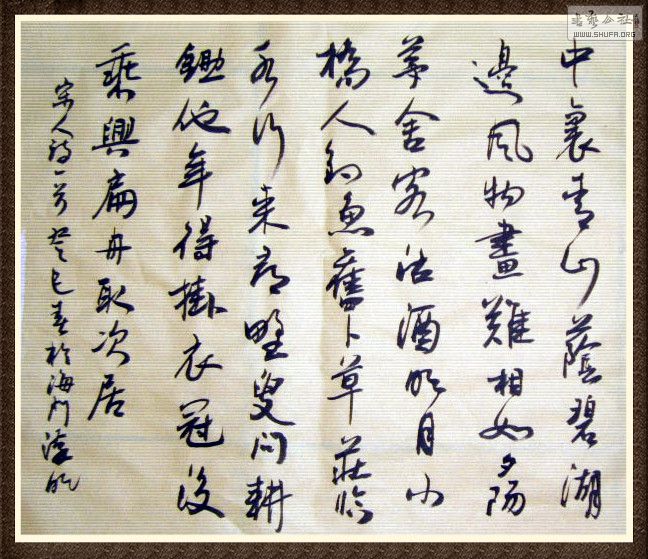 中裏青山蔭碧湖
邊風物畫難相如夕陽
茅舍客沽酒明月小
橋人釣魚舊卜草莊臨
水竹来尋野叟問耕
鋤他年得掛衣冠後
乘興扁舟取次居
宋人詩一首癸巳春於海門
书艺公社
WWW.SHUFA.ORG